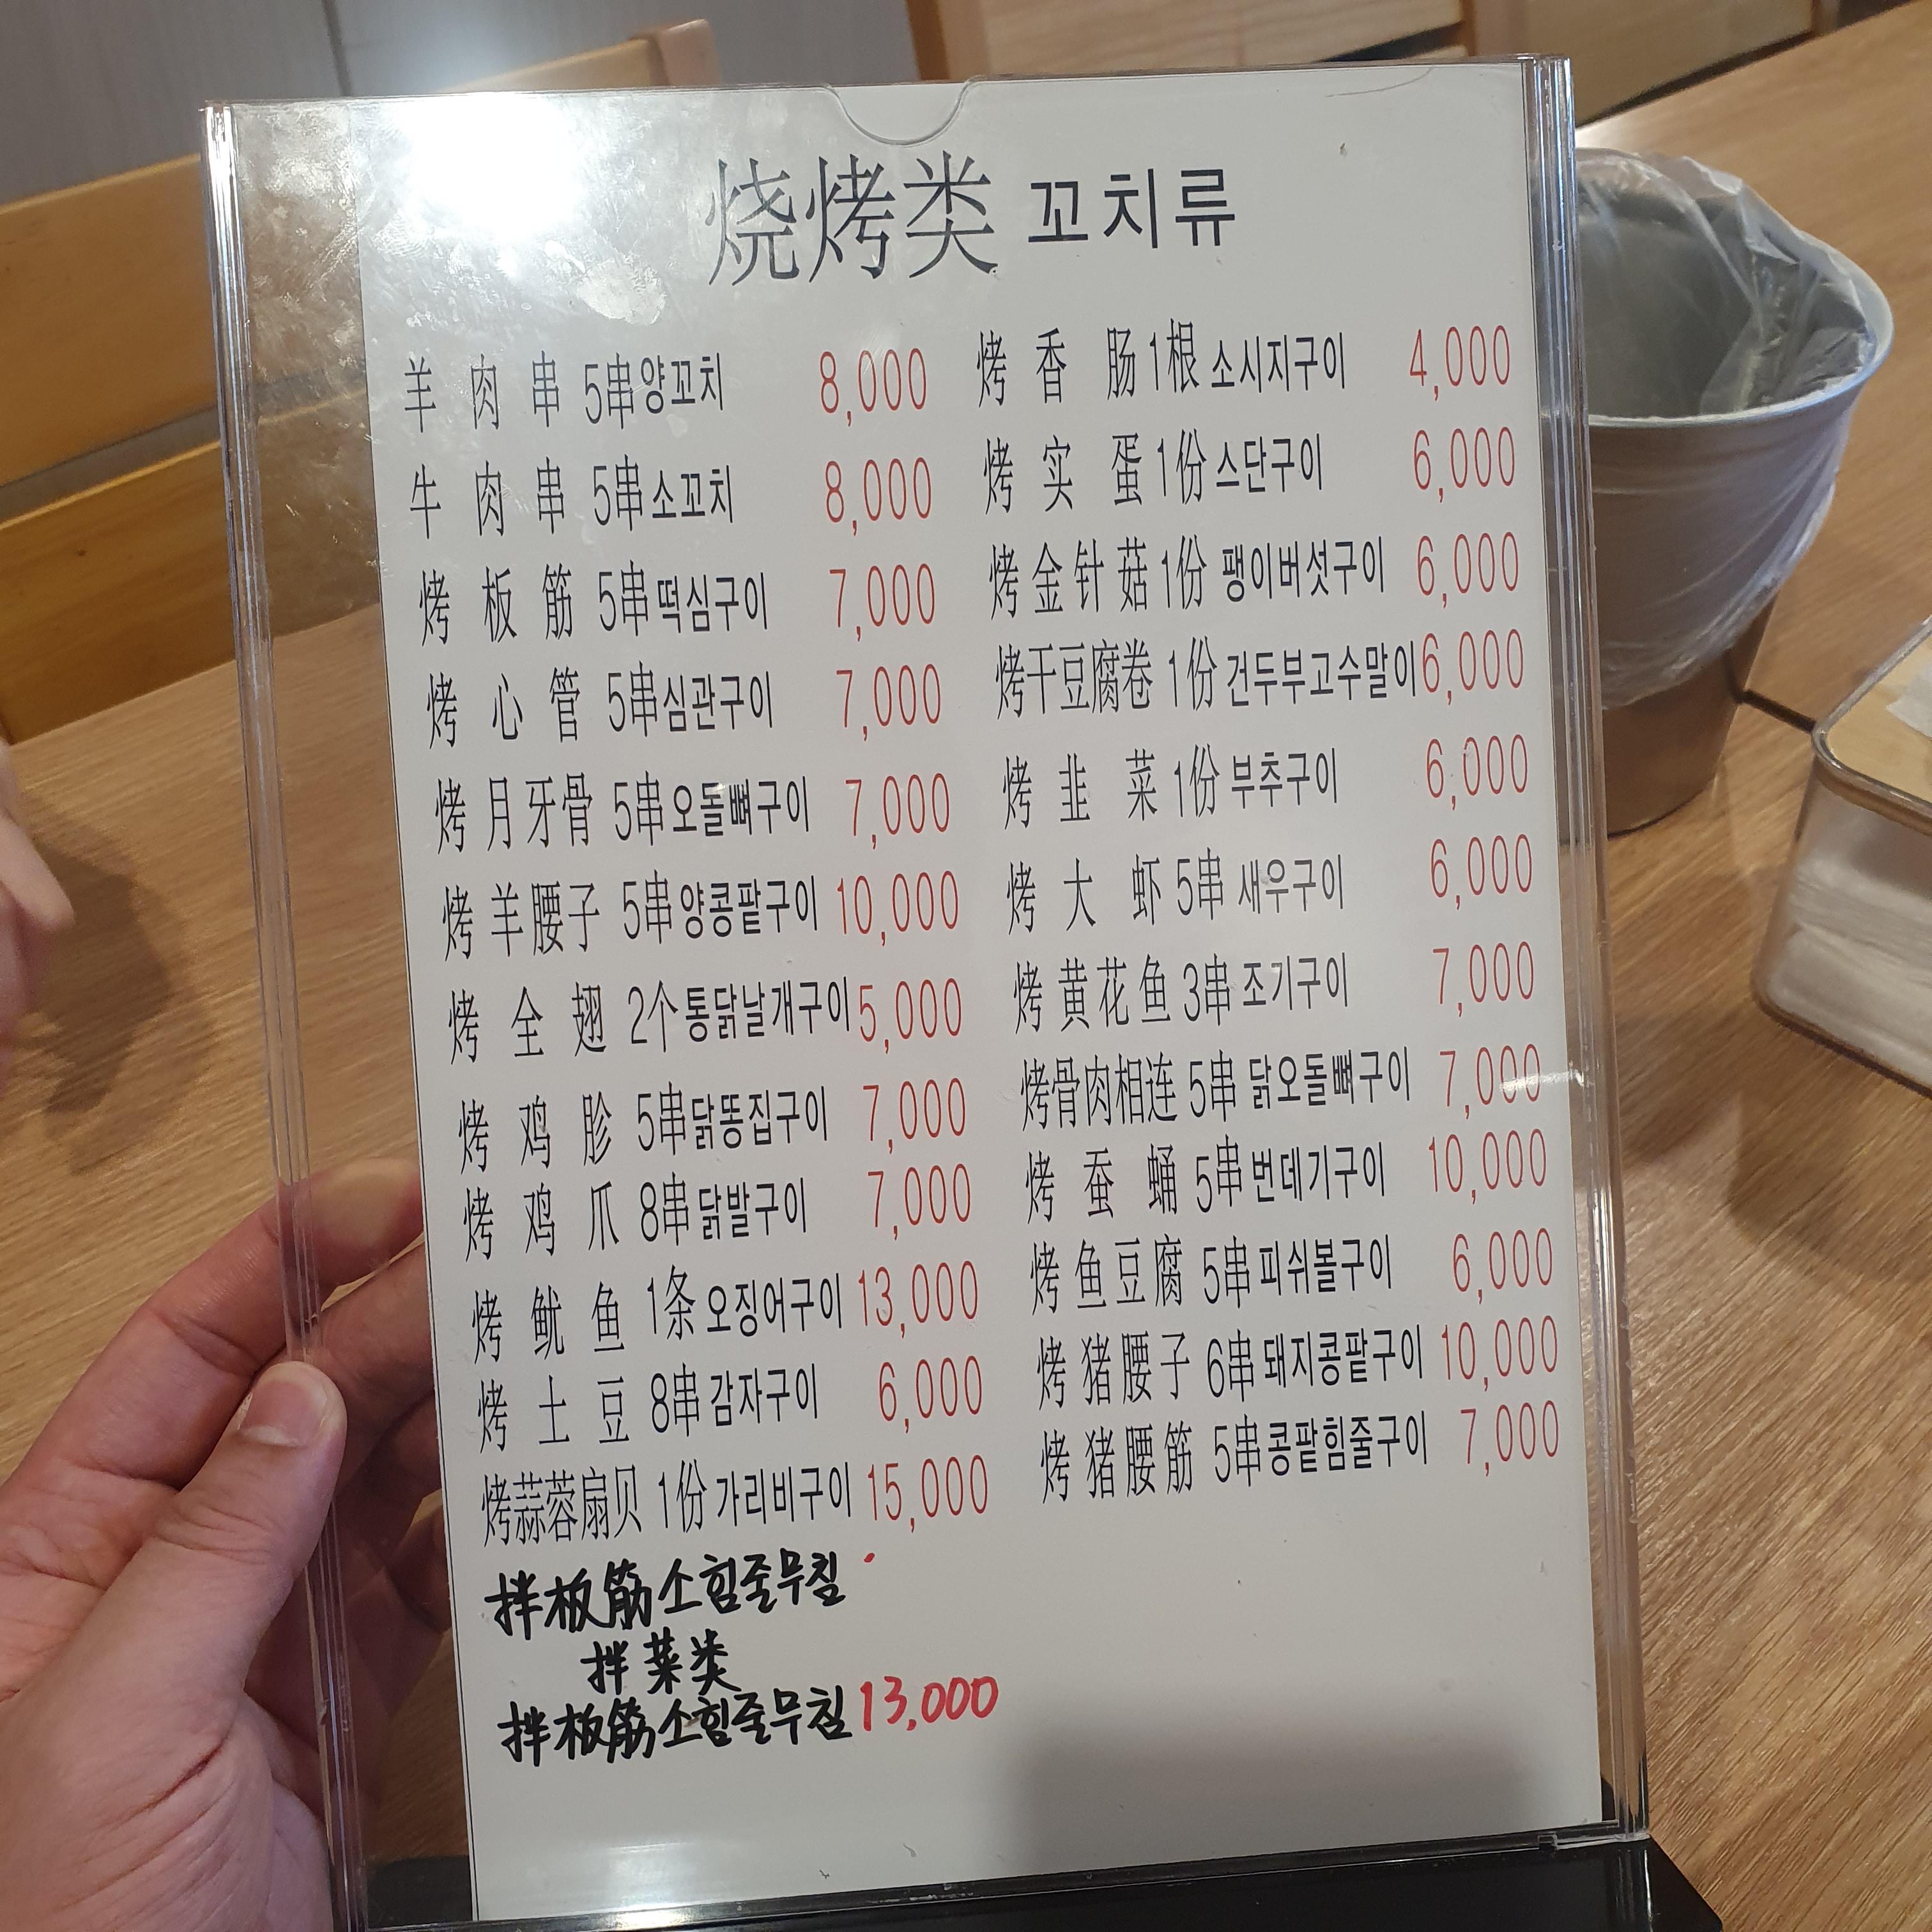 烧烤类 꼬치류
羊肉串 5串 양꼬치 8,000
牛肉串 5串 소꼬치 8,000
烤板筋 5串 떡심구이 7,000
烤心管 5串 심관구이 7,000
烤月牙骨 5串 오돌뼈구이 7,000
烤羊腰子 5串 양콩팥구이 10,000
烤全翅 2个 통닭날개구이 5,000
烤鸡胗 5串 닭똥집구이 7,000
烤鸡爪 8串 닭발구이 7,000
烤鱿鱼 1条 오징어구이 13,000
烤土豆 8串 감자구이 6,000
烤蒜蓉扇贝 1份 가리비구이 15,000
拌板筋 소힘줄무침
拌菜类
拌板筋 소힘줄무침 13,000
烤香肠 1根 소시지구이 4,000
烤实蛋 1份 스단구이 6,000
烤金针菇 1份 팽이버섯구이 6,000
烤干豆腐卷 1份 건두부고수말이 6,000
烤韭菜 1份 부추구이 6,000
烤大虾 5串 새우구이 6,000
烤黄花鱼 3串 조기구이 7,000
烤骨肉相连 5串 닭오돌뼈구이 7,000
烤蚕蛹 5串 번데기구이 10,000
烤鱼豆腐 5串 피쉬볼구이 6,000
烤猪腰子 6串 돼지콩팥구이 10,000
烤猪腰筋 5串 콩팥힘줄구이 7,000